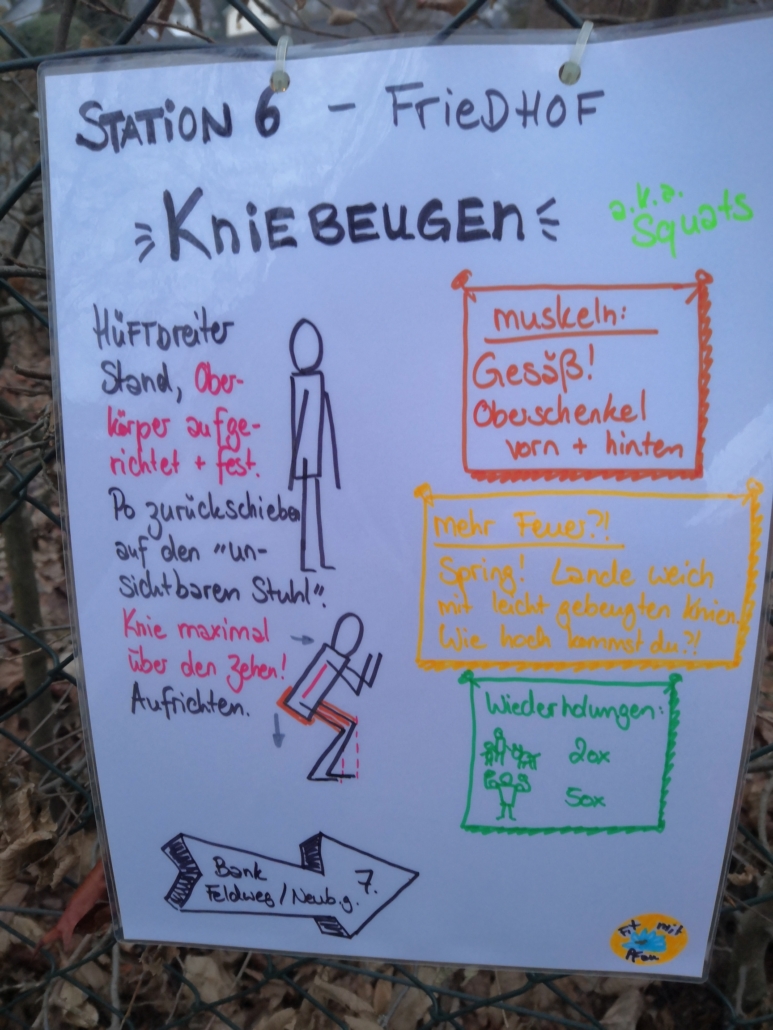 STATION 6 - FrieDHOF
KniEBEUGEn
a.k.a.
Squats
HÜFTbreiter
Stand, Ober-
körper aufge-
richtet + fest.
Po zurückschieben
auf den "un-
sichtbaren Stuhl".
Knie maximal
über den Zehen!
Aufrichten.
muskeln:
Gesäß!
Oberschenkel
vorn + hinten
mehr Feuer?!
Spring! Lande weich
mit leicht gebeugten Knien.
Wie hoch kommst du?!
Wiederholungen:
20x
50x
Bank 7.
Feldweg / Neubig.
Fit mit
Pfau